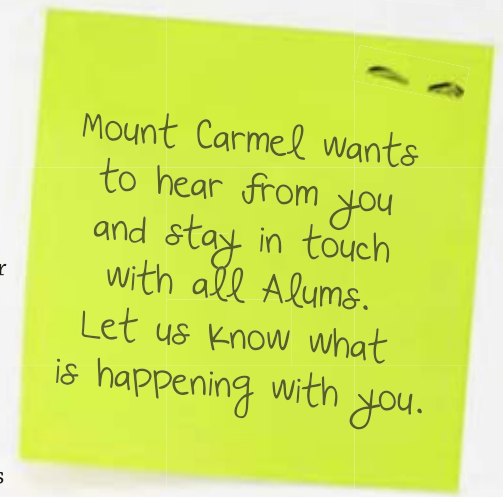 Mount Carmel wants
to hear from you
and stay in touch
with all Alums.
Let us know what
is happening with you.